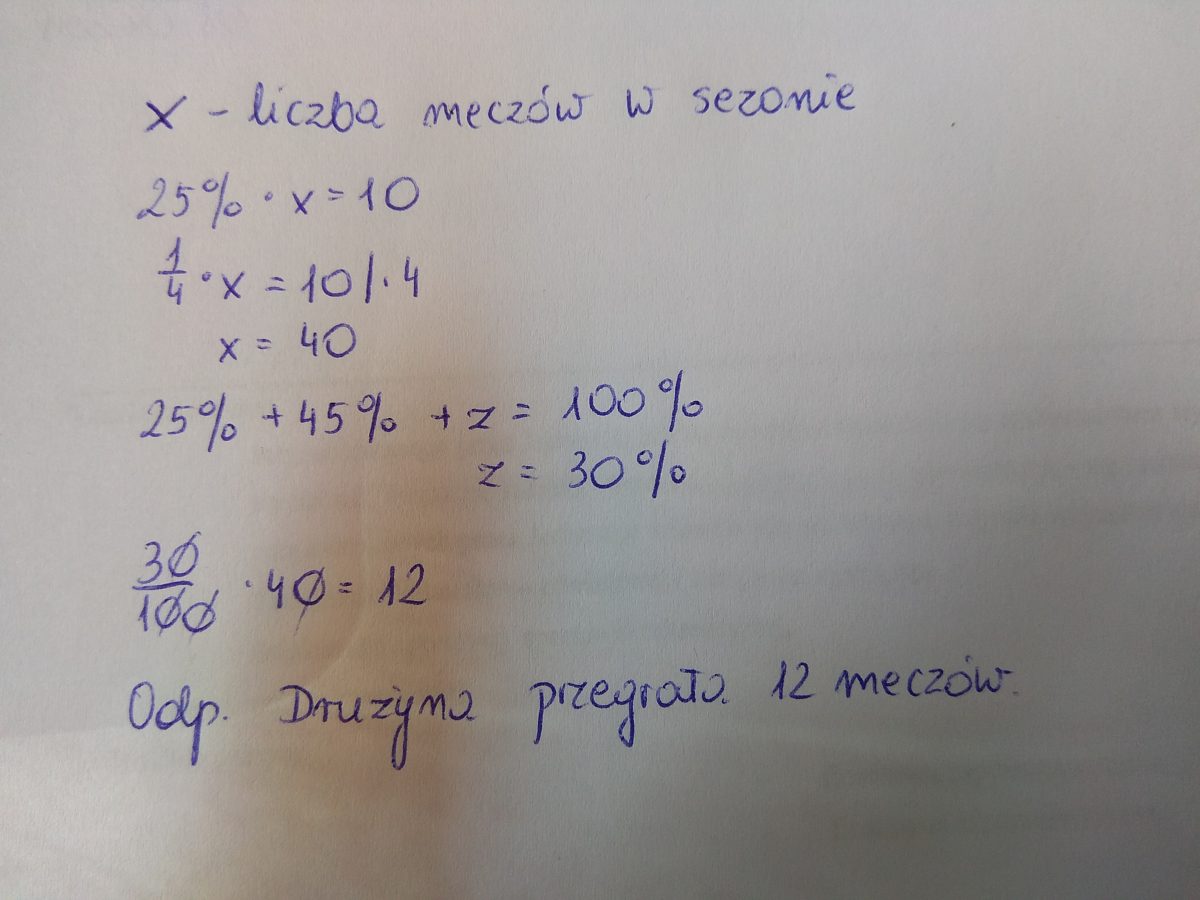 x - liczba meczów w sezonie
25% · x = 10
1/4 · x = 10 /· 4
x = 40
25% + 45% + z = 100%
z = 30%
30/100 · 40 = 12
Odp. Drużyna przegrała 12 meczów.